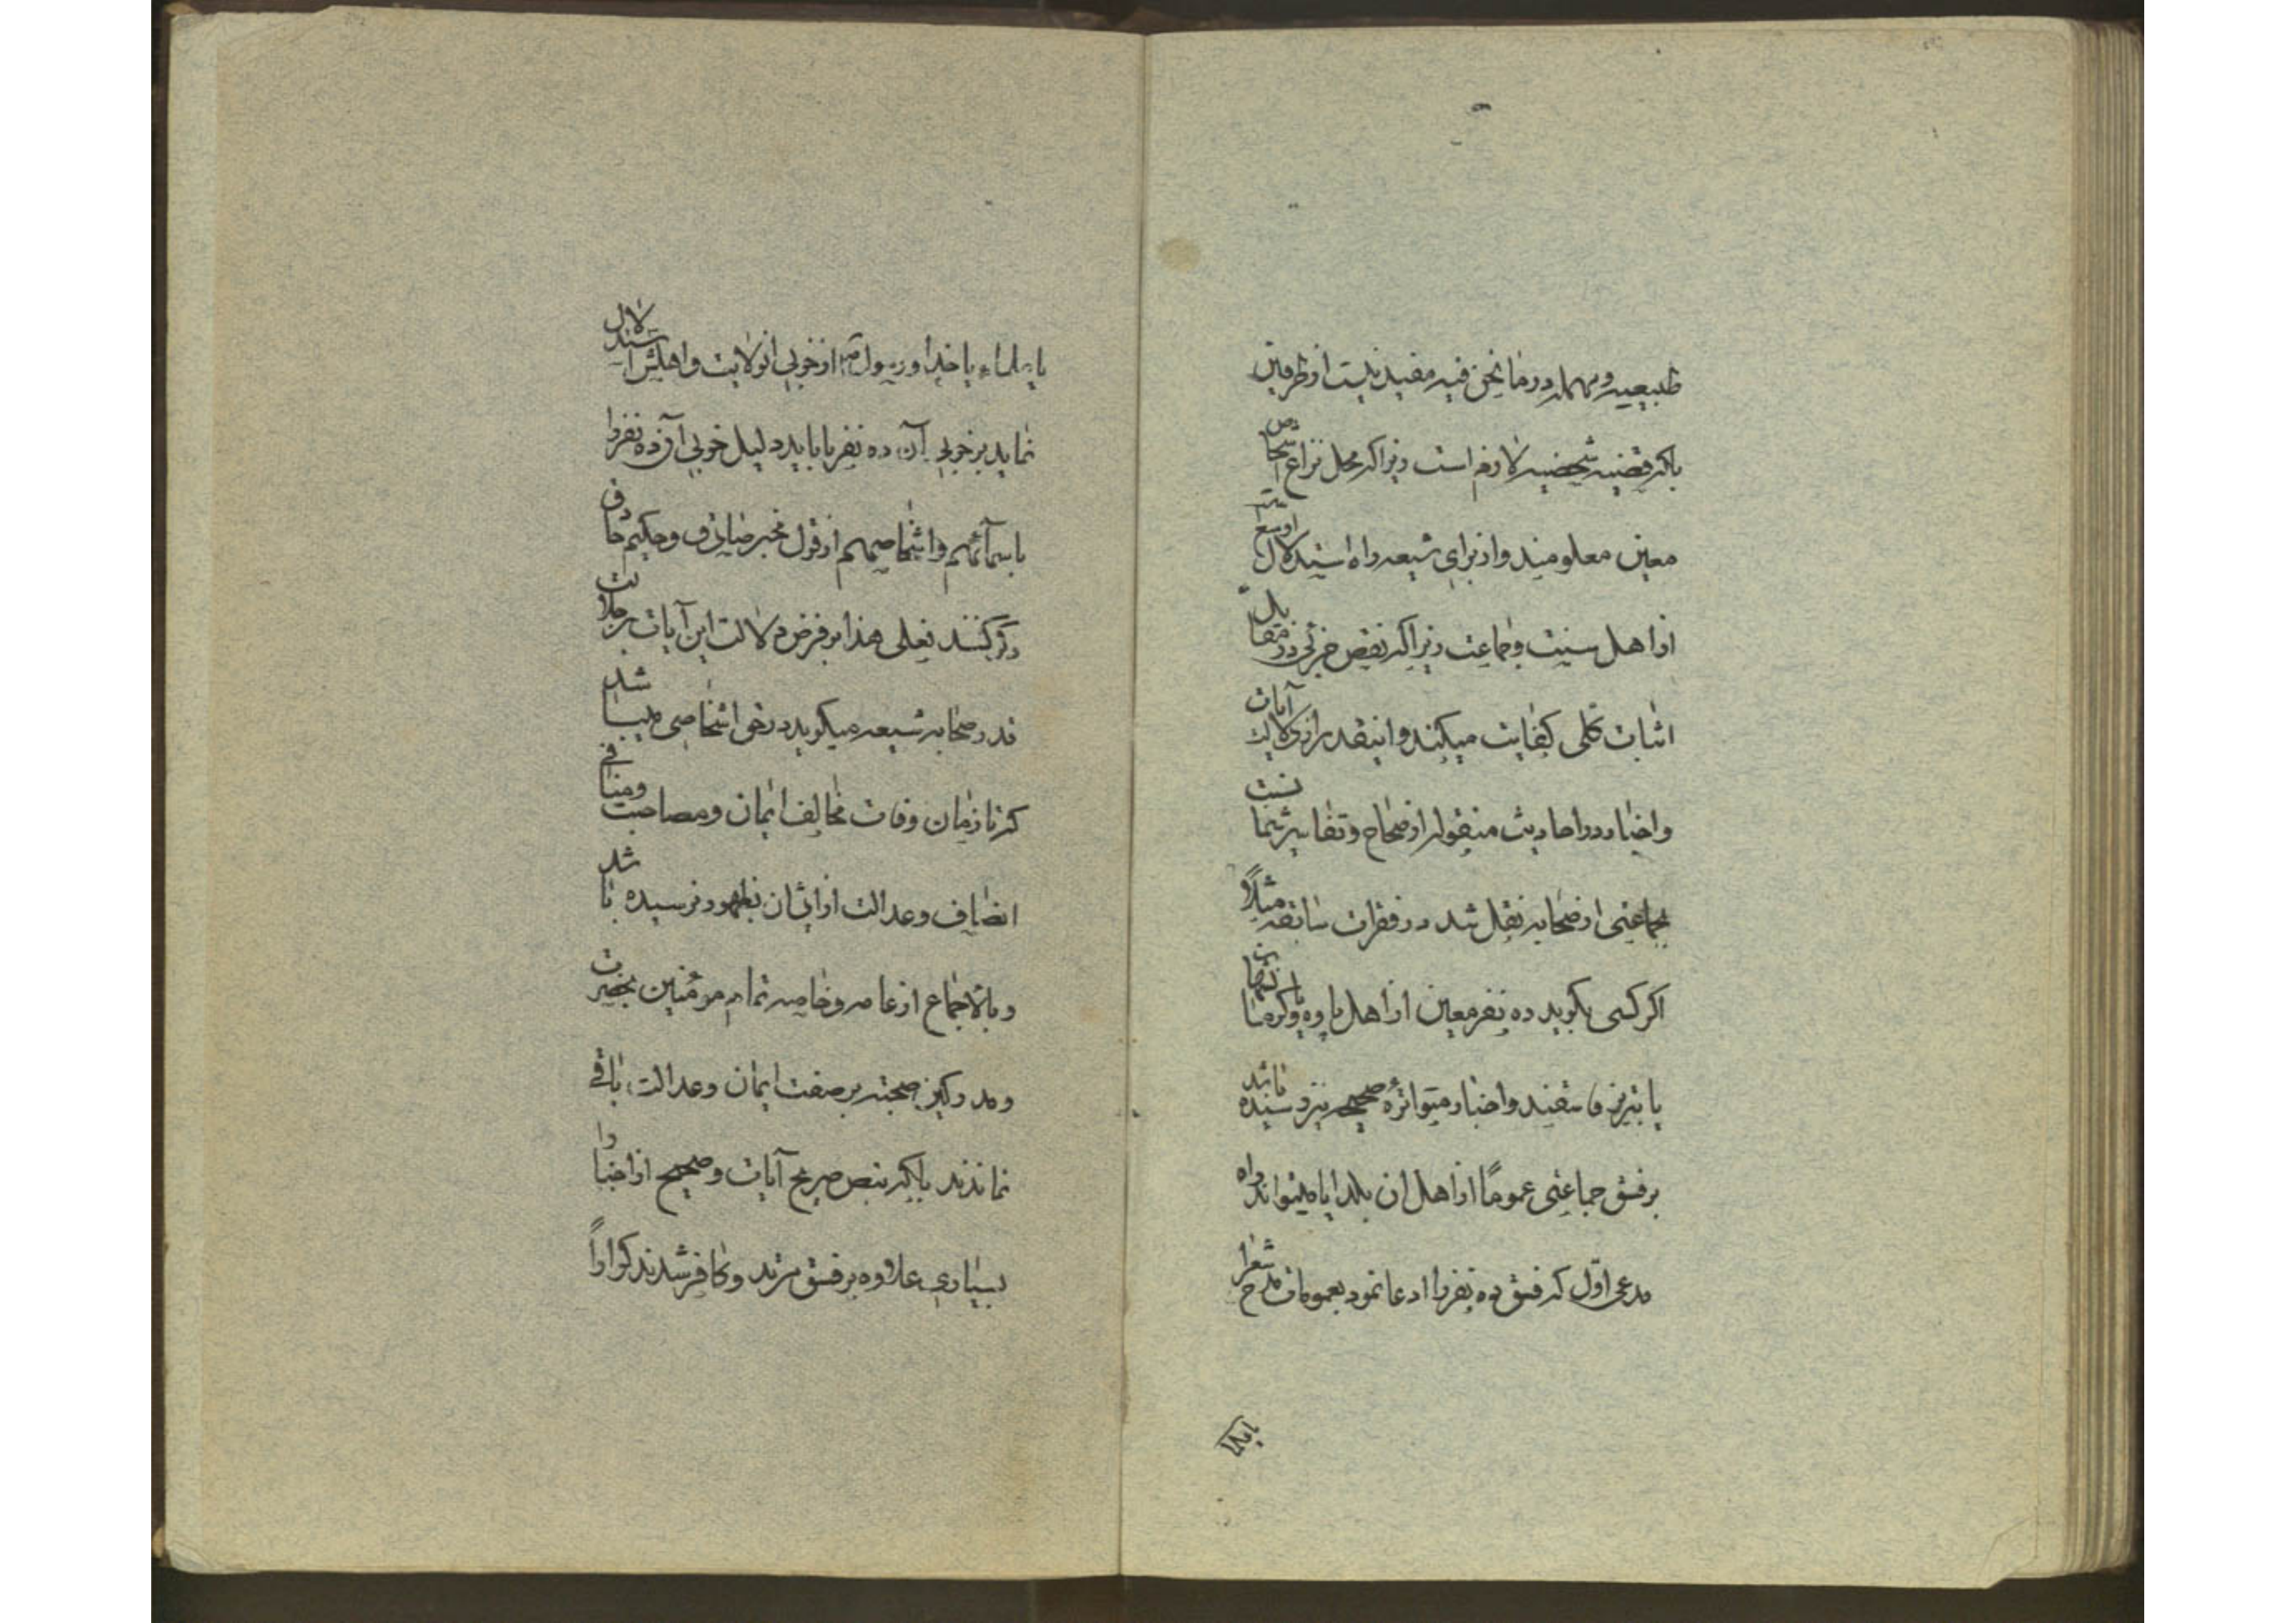 طبیعیه و مهمله در ما نحن فیه مفید نیست از طرفین
بلکه قضیه شخصیه لازم است زیرا که محل نزاع اشخاص
معین معلومند و از برای شیعه راه استدلال اوسع است
از اهل سنت و جماعت زیرا که نقیض جزئی در مقابل
اثبات کلی کفایت میکند و اینقدر از دلایل آیات
و اخبار در احادیث منقوله از صحاح و تفاسیر شما نسبت
بجماعتی از صحابه نقل شد در فقرات سابقه مثلاً
اگر کسی بگوید ده نفر معین از اهل پاوه و کرمانشاهان
یا تبریز فاسقند و اخبار متواتره صحیحه نیز رسیده باشد
بر فسق جماعتی عموماً از اهل ان بلد ایا میتواند راه
مدعی اوّل که فسق ده نفر را ادعا نمود بعمومات مدح شعرا
یا علماء یا خدا و رسول از خوبی انولایت و اهلش استدلال
نماید بر خوبی آن ده نفر یا باید دلیل خوبی آن ده نفر را
باسمائهم و اشخاصهم از قول مخبر صادق و حکیم حاذق
ذکر کنند فعلی هذا بر فرض دلالت این آیات بر جلالت
قدر صحابه شیعه میگوید در حق اشخاصی میباشد
که تا زمان وفات مخالف ایمان و مصاحبت و منافی
انصاف و عدالت از ایشان بظهور نرسیده باشد
و بالاجماع از عامه و خاصه تمام مومنین بحضرت
و مدرکین صحبته بر صفت ایمان و عدالت باقی
نماندند بلکه بنص صریح آیات و صحیح از اخبار
بسیاری علاوه بر فسق مرتد و کافر شدند